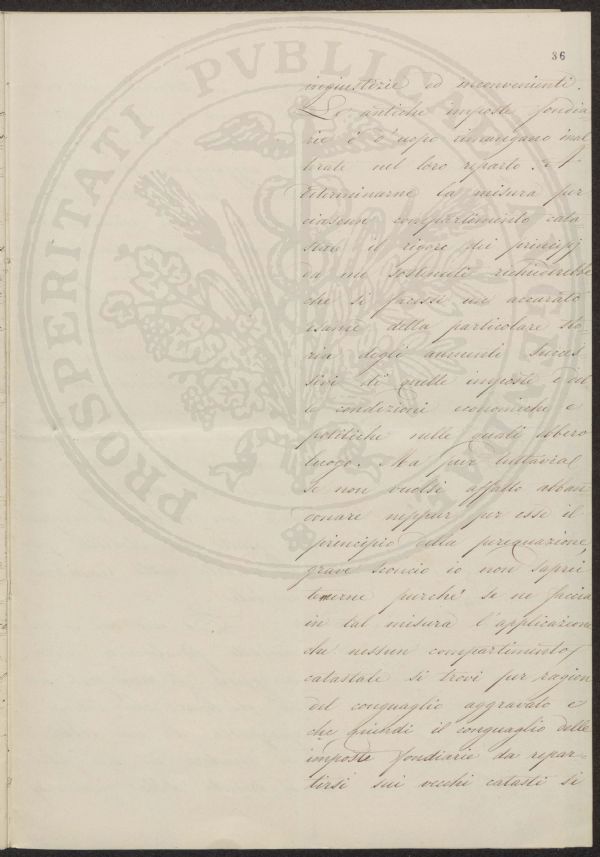 36
ingiustizie ed inconvenienti.
Le antiche imposte fondia
rie è d'uopo rimangano inal
terate nel loro reparto. A
determinarne la misura per
ciascun compartimento cata
stale il rigore dei principj
da me sostenuti richiederebbe
che si facesse un accurato
esame della particolare sto
ria degli aumenti succes
sivi di quelle imposte e del
le condizioni economiche e
politiche nelle quali ebbero
luogo. Ma pur tuttavia
se non vuolsi affatto abban
donare neppur per esse il
principio della perequazione,
grave sconcio io non saprei
temerne purché se ne faccia
in tal misura l'applicazione
che nessun compartimento
catastale si trovi per ragion
del conguaglio aggravato e
che quindi il conguaglio delle
imposte fondiarie da repar-
tirsi sui vecchi catasti si
PROSPERITATI PVBLICAE